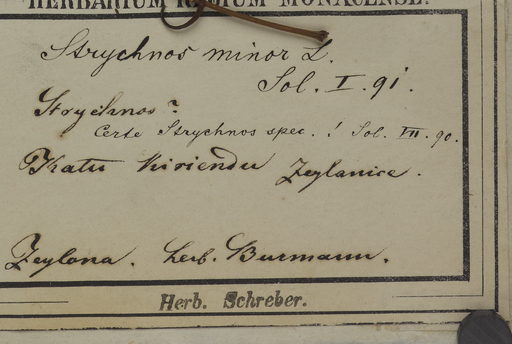 HERBARIUM REGIUM MONACENSE.
Strychnos minor L.
Sol. I. 91.
Strychnos?
Certe Strychnos spec.! Sol. VII. 90.
Katu kiriendu Zeylanice.
Zeylona. herb. Burmann.
Herb. Schreber.